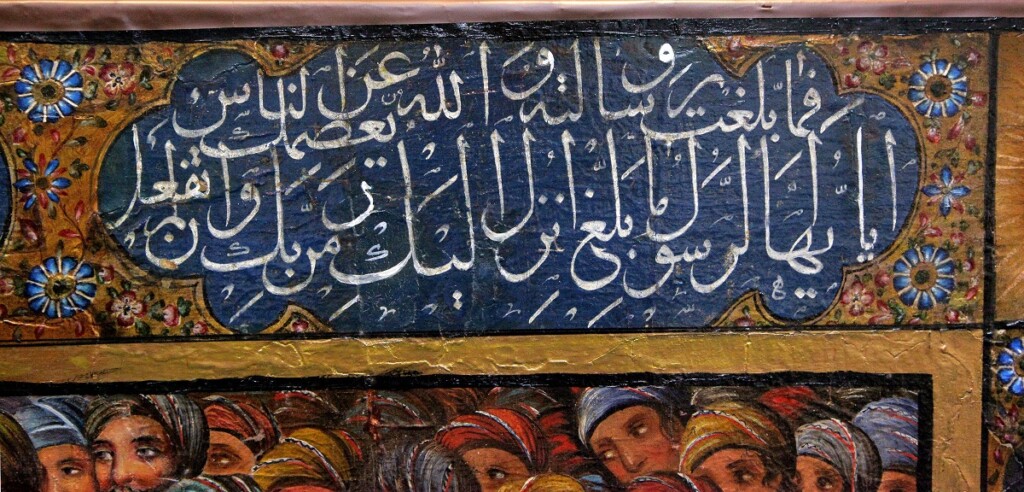 يا ايها الرسول بلغ ما انزل اليك من ربك وان لم تفعل
فما بلغت رسالته والله يعصمك عن الناس